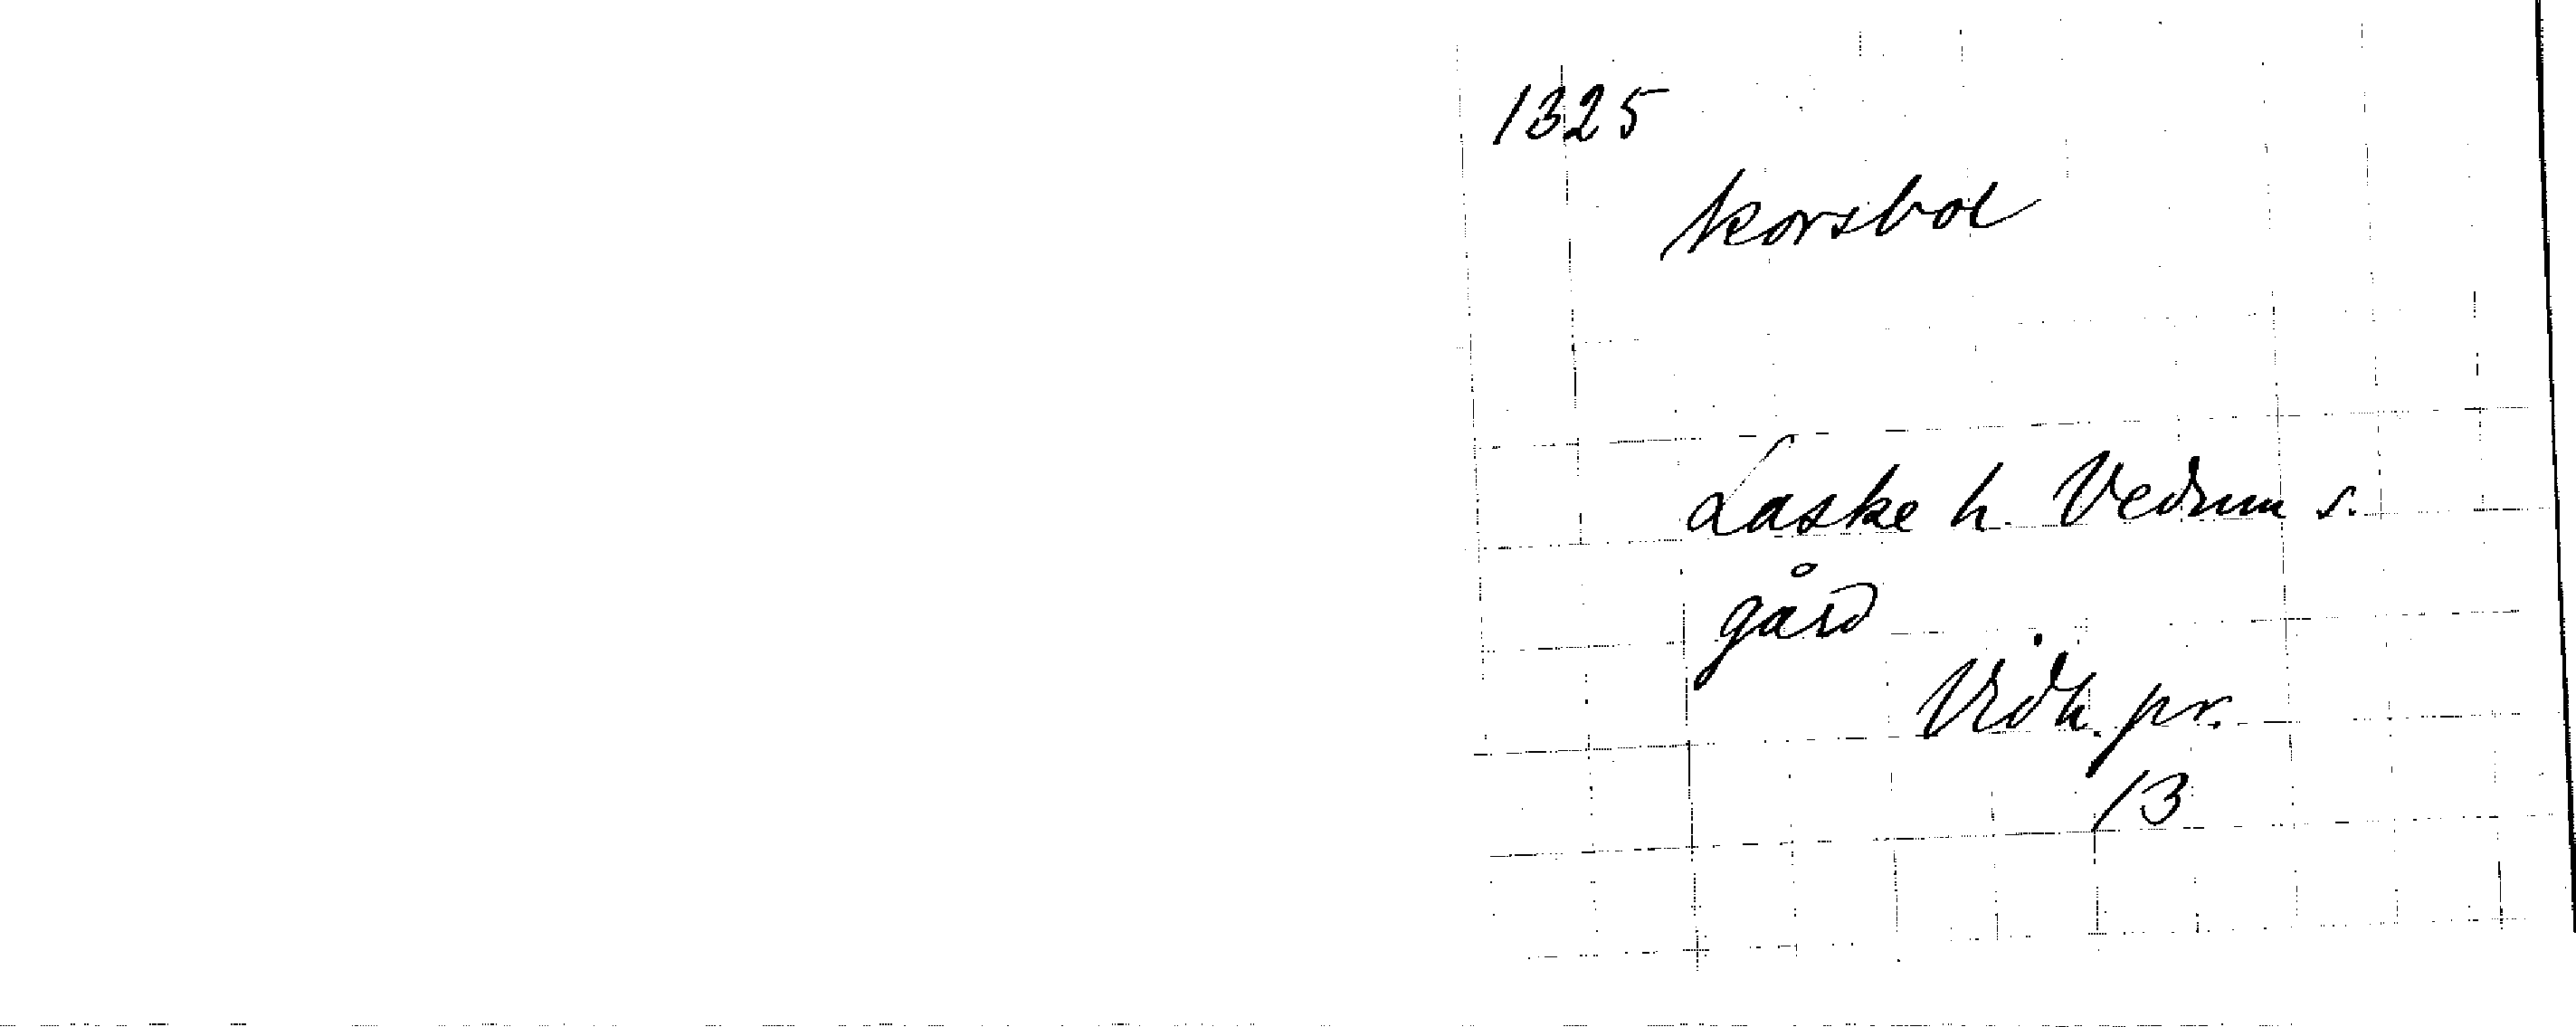 1325
korsbol
Laske h. Vedum s.
gård
Vidh. pr.
13